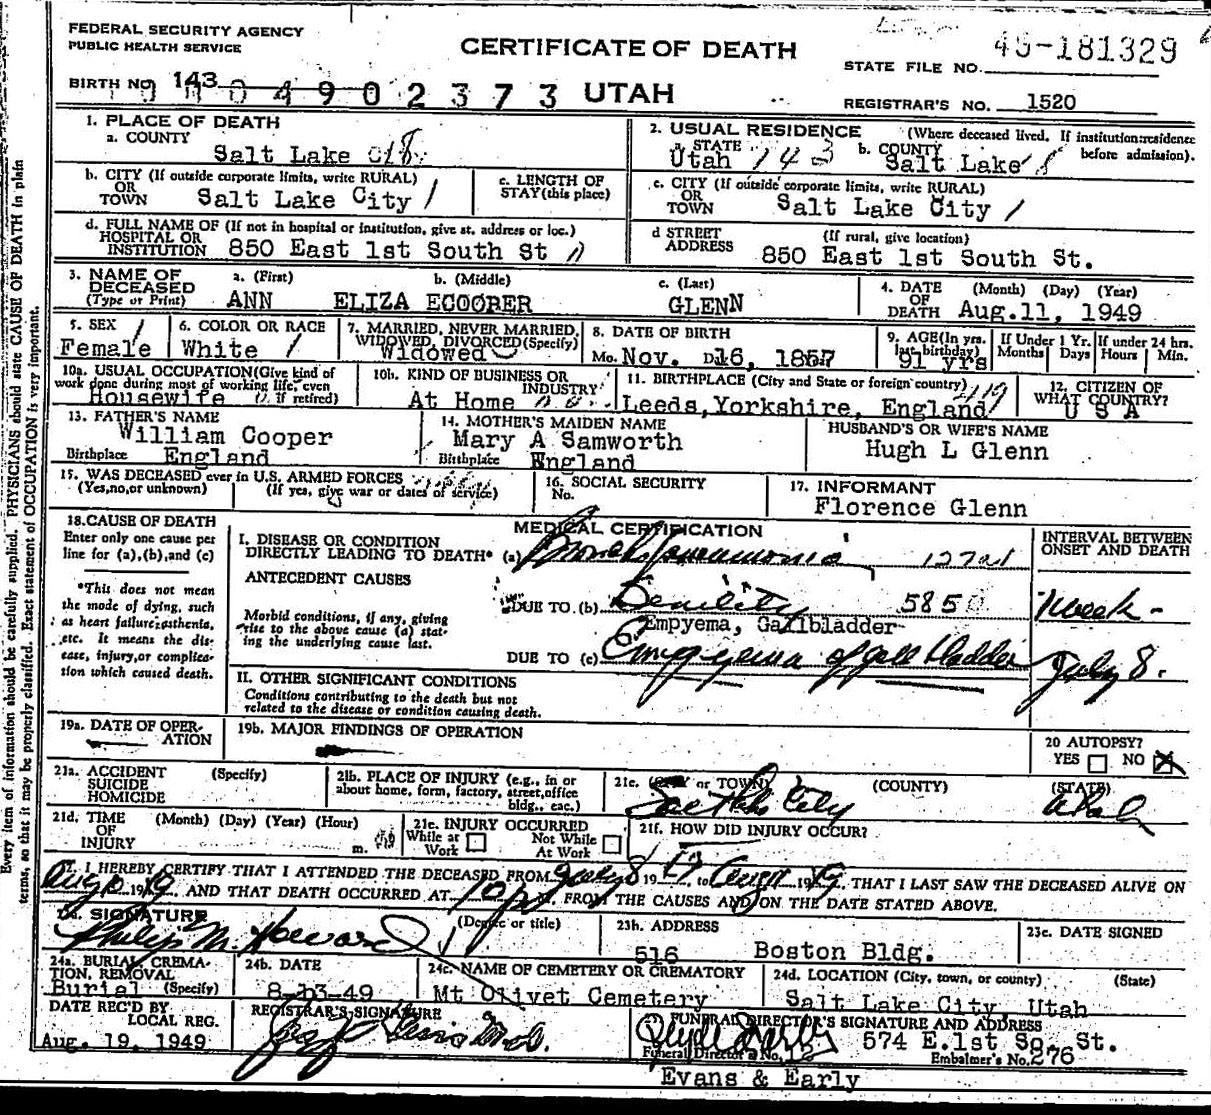 FEDERAL SECURITY AGENCY
PUBLIC HEALTH SERVICE
CERTIFICATE OF DEATH
STATE FILE NO. 45-181329
BIRTH NO. 143
04902373 UTAH
REGISTRAR'S NO. 1520
1. PLACE OF DEATH
a. COUNTY
Salt Lake
2. USUAL RESIDENCE (Where deceased lived. If institution: residence before admission).
a. STATE b. COUNTY
Utah 143 Salt Lake
b. CITY (If outside corporate limits, write RURAL)
OR
TOWN Salt Lake City
c. LENGTH OF
STAY (this place)
c. CITY (If outside corporate limits, write RURAL)
OR
TOWN Salt Lake City
d. FULL NAME OF (If not in hospital or institution, give st. address or loc.)
HOSPITAL OR
INSTITUTION 850 East 1st South St
d STREET (If rural, give location)
ADDRESS 850 East 1st South St.
3. NAME OF DECEASED
(Type or Print)
a. (First) b. (Middle) c. (Last)
ANN ELIZA ECOOPER GLENN
4. DATE OF DEATH (Month) (Day) (Year)
Aug.11, 1949
5. SEX
Female
6. COLOR OR RACE
White
7. MARRIED, NEVER MARRIED,
WIDOWED, DIVORCED (Specify)
Widowed
8. DATE OF BIRTH
Mo. Nov. D16, 1857
9. AGE (In yrs. last birthday)
91 yrs
If Under 1 Yr.
Months Days
If under 24 hrs.
Hours Min.
10a. USUAL OCCUPATION (Give kind of
work done during most of working life, even
if retired)
Housewife
10b. KIND OF BUSINESS OR
INDUSTRY
At Home
11. BIRTHPLACE (City and State or foreign country)
Leeds, Yorkshire, England
12. CITIZEN OF
WHAT COUNTRY?
U S A
13. FATHER'S NAME
William Cooper
Birthplace England
14. MOTHER'S MAIDEN NAME
Mary A Samworth
Birthplace England
HUSBAND'S OR WIFE'S NAME
Hugh L Glenn
15. WAS DECEASED ever in U.S. ARMED FORCES
(Yes, no, or unknown) (If yes, give war or dates of service)
16. SOCIAL SECURITY
No.
17. INFORMANT
Florence Glenn
18. CAUSE OF DEATH
Enter only one cause per
line for (a), (b), and (c)
*This does not mean
the mode of dying, such
as heart failure, asthenia,
etc. It means the dis-
ease, injury, or complica-
tion which caused death.
MEDICAL CERTIFICATION
I. DISEASE OR CONDITION
DIRECTLY LEADING TO DEATH* (a) Bronchopneumonia
ANTECEDENT CAUSES
Morbid conditions, if any, giving
rise to the above cause (a) stat-
ing the underlying cause last.
DUE TO (b) Senility 585
Empyema, Gallbladder
DUE TO (c) Empyema of gall bladder
INTERVAL BETWEEN
ONSET AND DEATH
1 week -
July 8.
II. OTHER SIGNIFICANT CONDITIONS
Conditions contributing to the death but not
related to the disease or condition causing death.
19a. DATE OF OPER-
ATION
19b. MAJOR FINDINGS OF OPERATION
20 AUTOPSY?
YES NO X
21a. ACCIDENT
SUICIDE
HOMICIDE
(Specify)
21b. PLACE OF INJURY (e.g., in or
about home, form, factory, street, office
bldg., eac.)
21c. (CITY or TOWN) (COUNTY) (STATE)
Salt Lake City Utah
21d. TIME OF INJURY (Month) (Day) (Year) (Hour)
m.
21e. INJURY OCCURRED
While at Work
Not While At Work
21f. HOW DID INJURY OCCUR?
I HEREBY CERTIFY THAT I ATTENDED THE DECEASED FROM July 8 19 to Aug 19 , THAT I LAST SAW THE DECEASED ALIVE ON
Aug 19 , AND THAT DEATH OCCURRED AT 10 p m. FROM THE CAUSES AND ON THE DATE STATED ABOVE.
SIGNATURE (Degree or title)
Philip M. Howard
23b. ADDRESS
516 Boston Bldg.
23c. DATE SIGNED
24a. BURIAL, CREMA-
TION, REMOVAL
Burial (Specify)
24b. DATE
8-13-49
24c. NAME OF CEMETERY OR CREMATORY
Mt Olivet Cemetery
24d. LOCATION (City, town, or county) (State)
Salt Lake City, Utah
DATE REC'D BY
LOCAL REG.
Aug. 19, 1949
REGISTRAR'S SIGNATURE
FUNERAL DIRECTOR'S SIGNATURE AND ADDRESS
574 E.1st So. St.
Funeral Director's No.
Embalmer's No. 276
Evans & Early
Every item of information should be carefully supplied. PHYSICIANS should state CAUSE OF DEATH in plain
terms, so that it may be properly classified. Exact statement of OCCUPATION is very important.